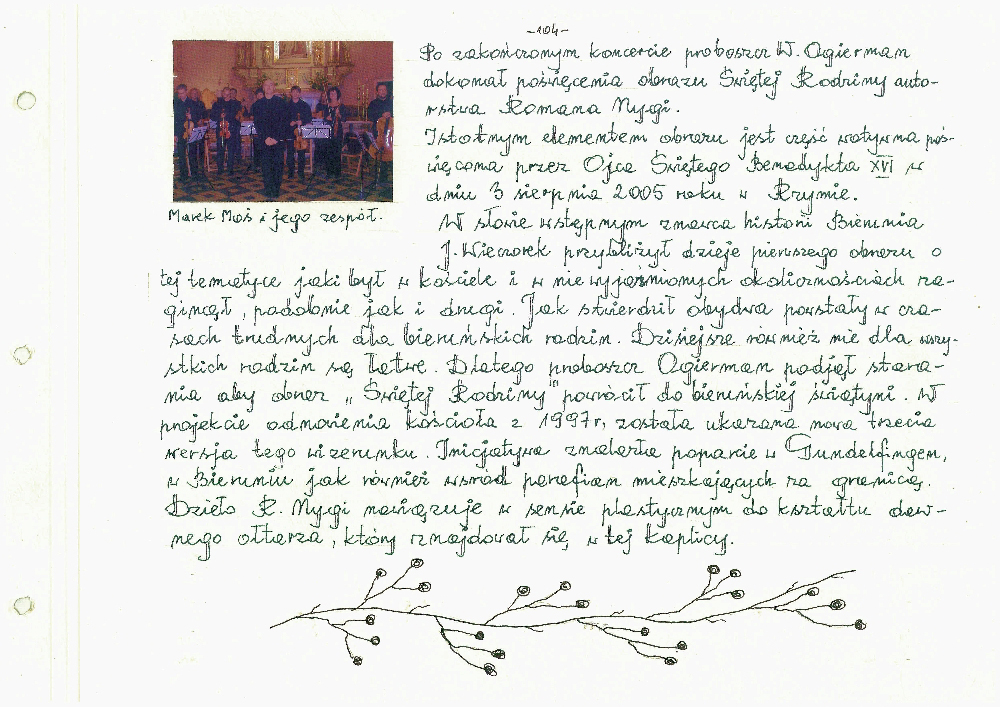 -104-
Po zakończonym koncercie proboszcz W. Ogierman
dokonał poświęcenia obrazu Świętej Rodziny auto-
rstwa Romana Nygi.
Istotnym elementem obrazu jest część wotywna poś-
więcona przez Ojca Świętego Benedykta XVI w
dniu 3 sierpnia 2005 roku w Rzymie.
Marek Moś i jego zespół.
W słowie wstępnym znawca historii Bierunia
J. Wieczorek przybliżył dzieje pierwszego obrazu o
tej tematyce jaki był w kościele i w niewyjaśnionych okolicznościach za-
ginął, podobnie jak i drugi. Jak stwierdził obydwa powstały w cza-
sach trudnych dla bieruńskich rodzin. Dzisiejsze również nie dla wszy-
stkich rodzin są łatwe. Dlatego proboszcz Ogierman podjął stara-
nia aby obraz „Świętej Rodziny" powrócił do bieruńskiej świątyni. W
projekcie odnowienia kościoła z 1997r, została ukazana nowa trzecia
wersja tego wizerunku. Inicjatywa znalazła poparcie w Gundelfingen,
w Bieruniu jak również wśród parafian mieszkających za granicą.
Dzieło R. Nygi nawiązuje w sensie plastycznym do kształtu daw-
nego ołtarza, który znajdował się w tej kaplicy.